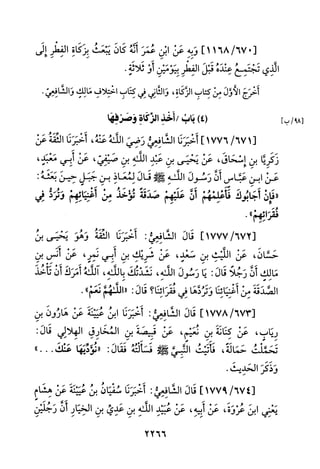 [٦٧٠/ ١١٦٨] وَبِهِ عَنْ ابْنِ عُمَرَ أَنَّهُ كَانَ يَبْعَثُ بِزَكَاةِ الفِطْرِ إِلَى
الَّذِي تَجْتَمِعُ عِنْدَهُ قَبْلَ الفِطْرِ بِيَوْمَيْنِ أَوْ ثَلَاثَةٍ.
أَخْرَجَ الأَوَّلَ مِنْ كِتَابِ الزَّكَاةِ، وَالثَّانِي فِي كِتَابِ اخْتِلافِ مَالِكٍ وَالشَّافِعِي.
[٩٨/ ب]
(٤) بَابُ / أَخْذِ الزَّكَاةِ وَصَرْفِهَا
[٦٧١/ ١٧٧٦] أَخْبَرَنَا الشَّافِعِيُّ رَضِيَ اللَّهُ عَنْهُ، أَخْبَرَنَا الثِّقَةُ عَنْ
زَكَرِيَّا بنِ إِسْحَاقَ، عَنْ يَحْيَى بنِ عَبْدِ اللَّهِ بنِ صَيْفِيّ، عَنْ أَبِي مَعْبَدٍ،
عَنْ ابنِ عَبَّاسٍ أَنَّ رَسُولَ اللَّهِ ﷺ قَالَ لِمُعَاذِ بنِ جَبَلٍ حِينَ بَعَثَهُ:
«فَإِنْ أَجَابُوكَ فَأَعْلِمْهُمْ أَنَّ عَلَيْهِمْ صَدَقَةً تُؤْخَذُ مِنْ أَغْنِيَائِهِمْ وَتُرَدُّ فِي
فُقَرَائِهِمْ».
[٦٧٢/ ١٧٧٧] قَالَ الشَّافِعِيُّ: أَخْبَرَنَا الثِّقَةُ وَهُوَ يَحْيَى بنُ
حَسَّانَ، عَنْ اللَّيْثِ بنِ سَعْدٍ، عَنْ شَرِيْكِ بنِ أَبِي نَمِرٍ، عَنْ أَنَسِ بنِ
مَالِكٍ أَنَّ رَجُلًا قَالَ: يَا رَسُولَ اللَّهِ، نَشَدْتُكَ بِاللَّهِ، آللَّهُ أَمَرَكَ أَنْ تَأْخُذَ
الصَّدَقَةَ مِنْ أَغْنِيَائِنَا وَتَرُدَّهَا فِي فُقَرَائِنَا؟ قَالَ: «اللَّهُمَّ نَعَمْ».
[٦٧٣/ ١٧٧٨] قَالَ الشَّافِعِيُّ: أَخْبَرَنَا ابنُ عُيَيْنَةَ عَنْ هَارُونَ بنِ
رِيَابٍ، عَنْ كِنَانَةَ بنِ نُعَيْمٍ، عَنْ قَبِيصَةَ بنِ المُخَارِقِ الهِلَالِي قَالَ:
تَحَمَّلْتُ حَمَالَةً، فَأَتَيْتُ النَّبِيَّ ﷺ فَسَأَلْتُهُ فَقَالَ: «نُؤَدِّيهَا عَنْكَ ...»
وَذَكَرَ الحَدِيثَ.
[٦٧٤/ ١٧٧٩] قَالَ الشَّافِعِيُّ: أَخْبَرَنَا سُفْيَانُ بنُ عُيَيْنَةَ عَنْ هِشَامٍ
يَعْنِي ابنَ عُرْوَةَ، عَنْ أَبِيهِ، عَنْ عُبَيْدِ اللَّهِ بنِ عَدِيِّ بنِ الخِيَارِ أَنَّ رَجُلَيْنِ
٢٢٦٦